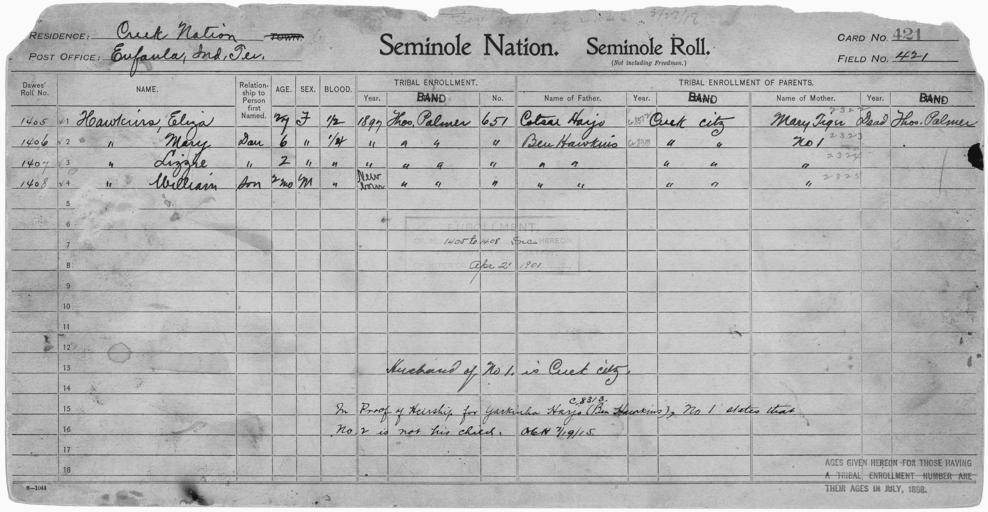 RESIDENCE: Creek Nation TOWN.
POST OFFICE: Eufaula, Ind. Ter.
Seminole Nation. Seminole Roll.
(Not including Freedmen.)
CARD NO. 421
FIELD NO. 421
Dawes' Roll No. NAME. Relationship to Person first Named. AGE. SEX. BLOOD. TRIBAL ENROLLMENT. TRIBAL ENROLLMENT OF PARENTS.
Year. BAND No. Name of Father. Year. BAND Name of Mother. Year. BAND
1405 1 Hawkins, Eliza 29 F 1/2 1897 Thos. Palmer 651 Cotsar Harjo Creek city Mary Tiger Dead Thos. Palmer
1406 2 " Mary Dau 6 " 1/4 " " " " Ben Hawkins " " No 1
1407 3 " Lizzie " 2 " " " " " " " " " " "
1408 4 " William Son 2 mo M " New Born " " " " " " " "
5
6
ENROLLMENT
7 1405 to 1408 Inc HEREON
8 Apr 2 1901
9
10
11
12
13 Husband of No 1. is Creek city.
14
C. 8313
15 In Proof of Heirship for Yarkinha Harjo (Ben Hawkins), No 1 states that
16 No 2 is not his child. OCH 7/19/15
17
18
AGES GIVEN HEREON FOR THOSE HAVING
A TRIBAL ENROLLMENT NUMBER ARE
THEIR AGES IN JULY, 1898.
6—1044